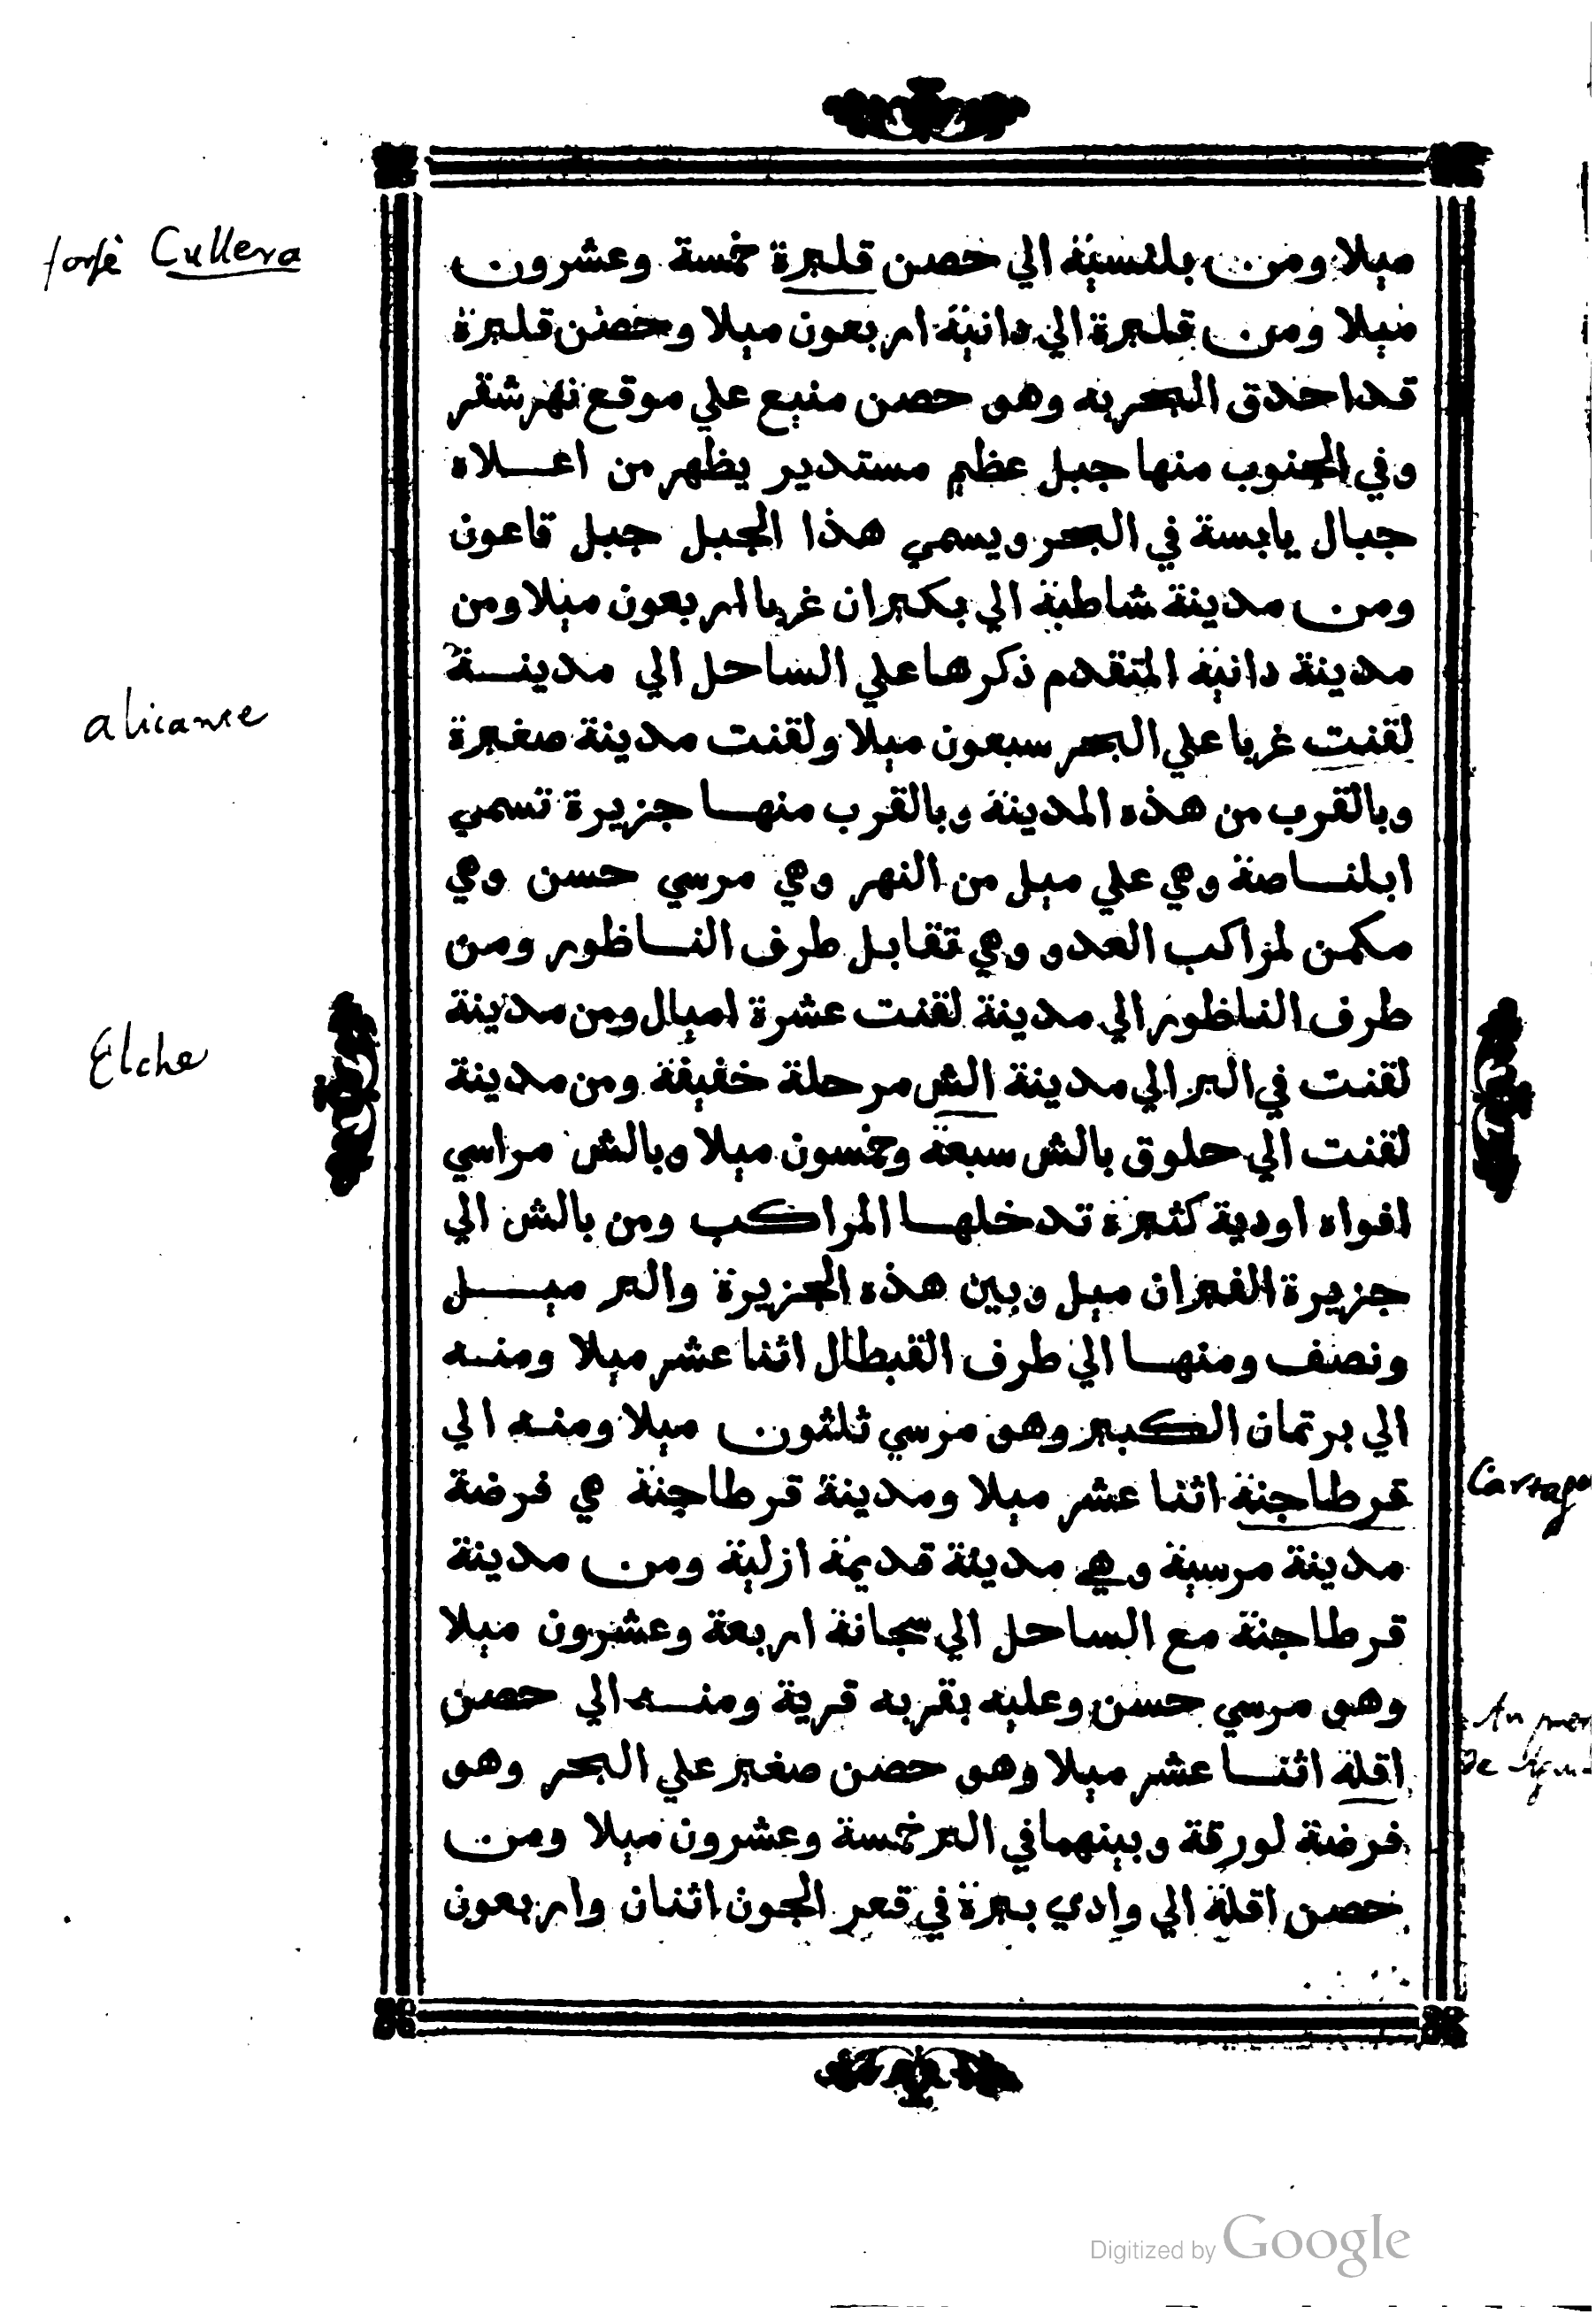 ميلا ومن بلنسية الي حصن قليرة خمسة وعشرون
ميلا ومن قليرة الي دانية اربعون ميلا وحصن قليرة
قد احدق البحر به وهو حصن منيع علي موقع نهر شقر
وفي الجنوب منها جبل عظيم مستدير يظهر من اعلاه
جبال يابسة في البحر ويسمي هذا الجبل جبل قاعون
ومن مدينة شاطبة الي بكيران غربا اربعون ميلا ومن
مدينة دانية المتقدم ذكرها علي الساحل الي مدينة
لقنت غربا علي البحر سبعون ميلا ولقنت مدينة صغيرة
وبالقرب من هذه المدينة وبالقرب منها جزيرة تسمي
ابلناصة وهي علي ميل من النهر وهي مرسي حسن وهي
مكمن لمراكب العدو وهي تقابل طرف الناظور ومن
طرف الناظور الي مدينة لقنت عشرة اميال ومن مدينة
لقنت في البر الي مدينة الش مرحلة خفيفة ومن مدينة
لقنت الي حلوق بالش سبعة وخمسون ميلا وبالش مراسي
افواه اودية كثيرة تدخلها المراكب ومن بالش الي
جزيرة الفيران ميل وبين هذه الجزيرة والبر ميل
ونصف ومنها الي طرف القبطال اثنا عشر ميلا ومنه
الي برتمان الكبير وهو مرسي ثلثون ميلا ومنه الي
قرطاجنة اثنا عشر ميلا ومدينة قرطاجنة هي فرضة
مدينة مرسية وهي مدينة قديمة ازلية ومن مدينة
قرطاجنة مع الساحل الي سجانة اربعة وعشرون ميلا
وهو مرسي حسن وعليه بقربه قرية ومنه الي حصن
اقلة اثنا عشر ميلا وهو حصن صغير علي البحر وهو
فرضة لورقة وبينهما في البر خمسة وعشرون ميلا ومن
حصن اقلة الي وادي بيرة في قعر الجون اثنان واربعون
Cullera
alicante
Elche
Digitized by Google